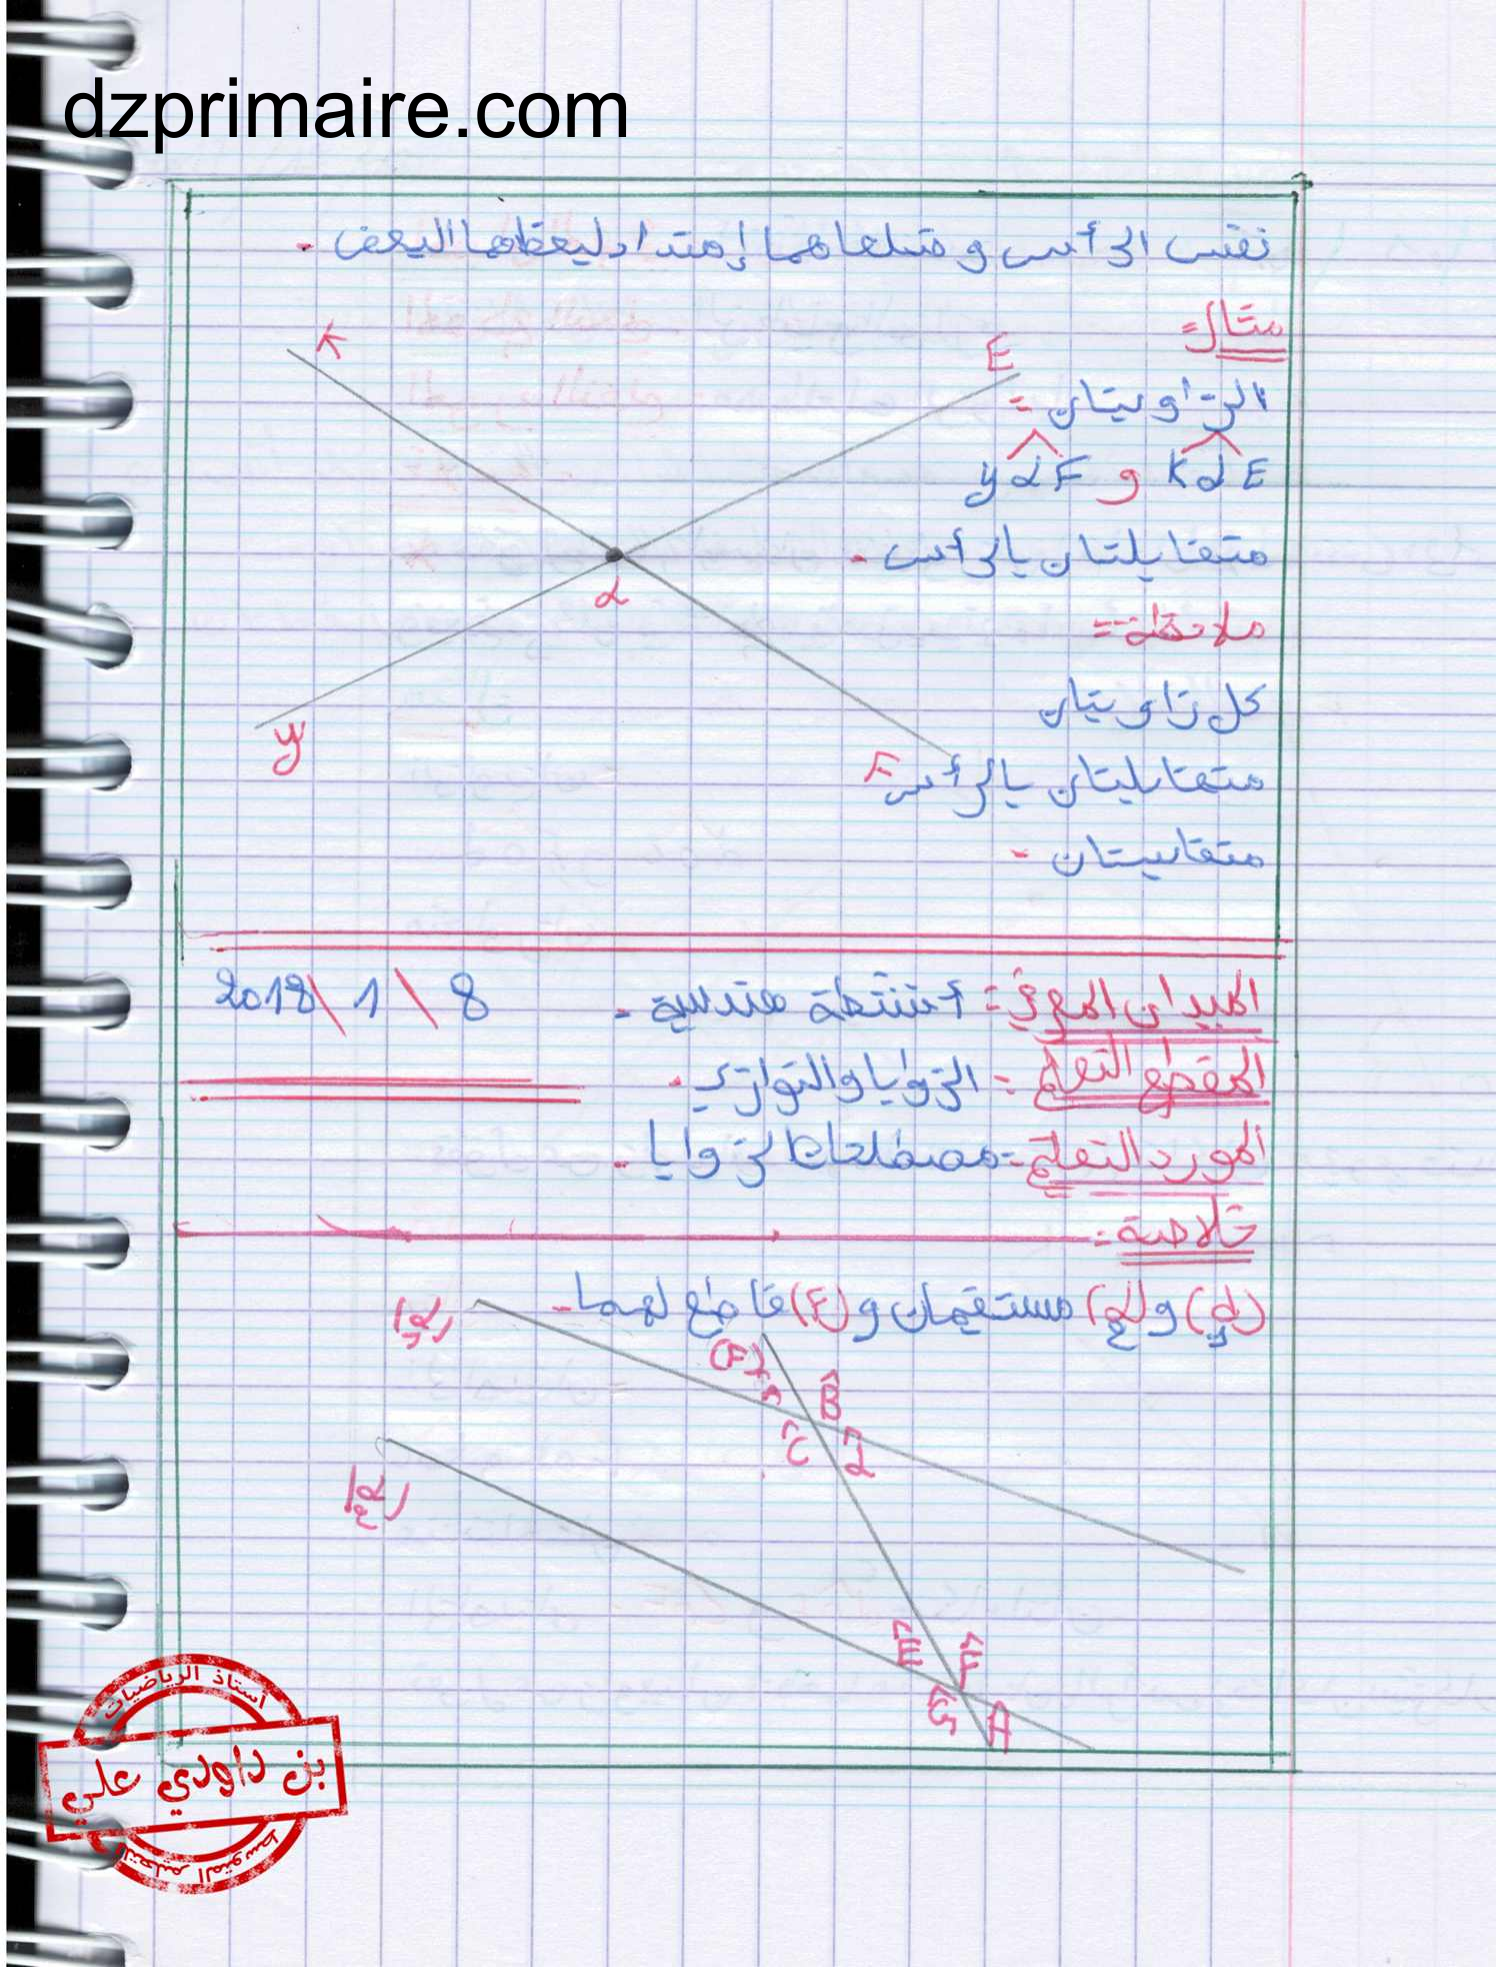 dzprimaire.com
نفس الرأس وضلعاهما إمتداد لبعظهما البعض.
مثال:
K
E
الزاويتان:
KαE و yαF
متقابلتان بالرأس.
α
ملاحظة:
كل زاويتان
y
F
متقابليتان بالرأس
متقايستان.
الميدان المعرفي: أنشطة هندسية. 8 \ 1 \ 2018
المقطع التعلمي: الزوايا والتوازي.
المورد التعلمي: مصطلحات الزوايا.
خلاصة:
مستقيمان و (F) قاطع لهما.
(F)
B̂
Ĉ
Ê
F̂
Ĝ
Ĥ
أستاذ الرياضيات
بن داودي علي
التعليم المتوسط